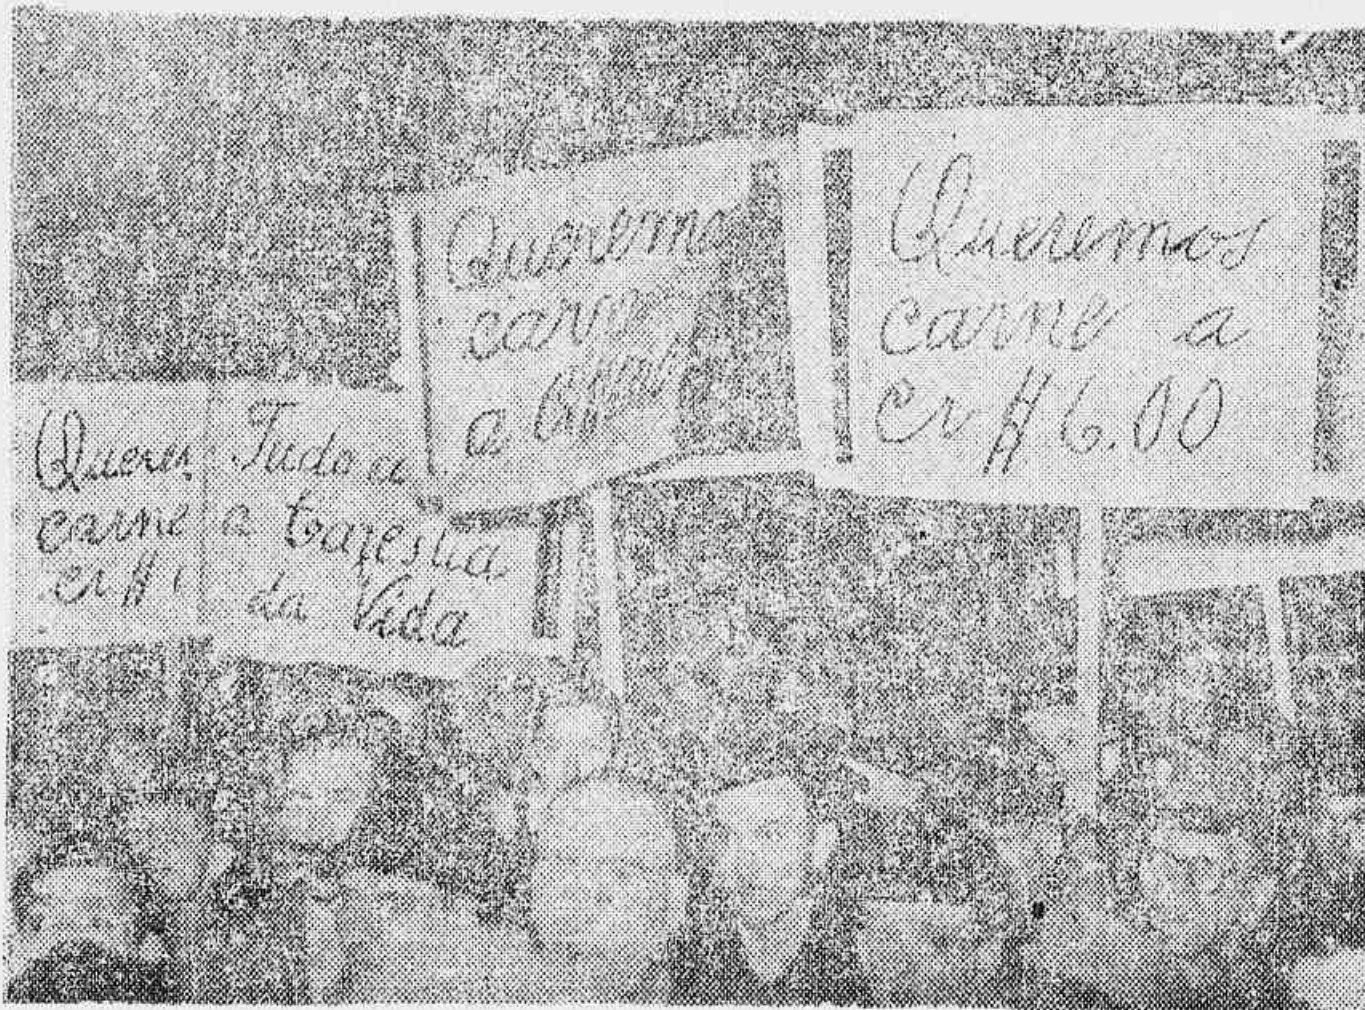 Querem
carne
cr$
Tudo a
a Carestia
da Vida
Queremo
carne
a
Queremos
carne a
Cr $ 6.00